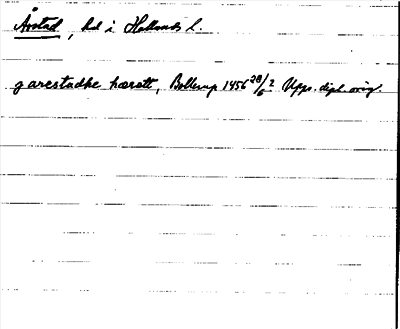 Årstad, hd i Hallands l.
j arestadhe hærætt, Bollerup 1456 28/6 2 Upps. dipl. orig.